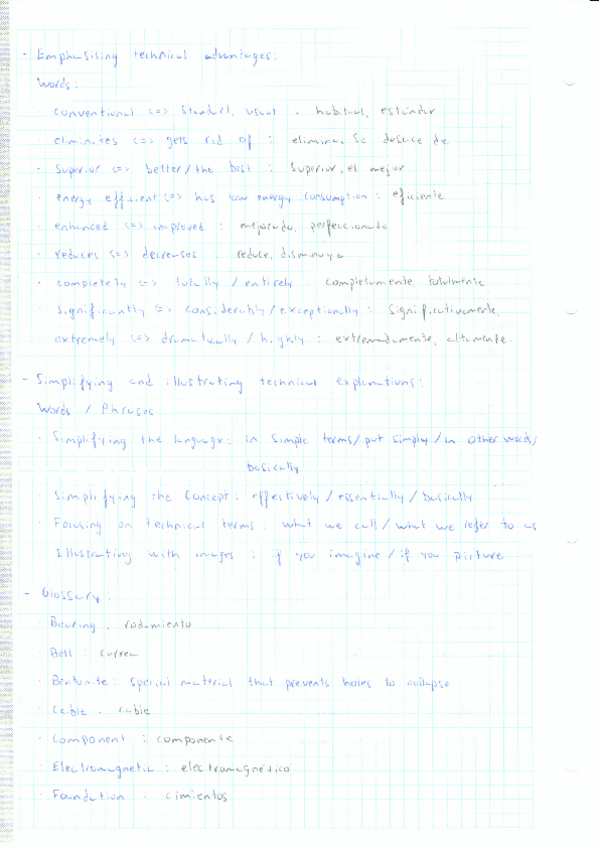 - Emphasising technical advantages:
Words:
· conventional <=> standard, usual : habitual, estándar
· eliminates <=> gets rid of : elimina, se deshace de
· Superior <=> better/the best : Superior, el mejor
· energy efficient <=> has low energy consumption : eficiente
· enhanced <=> improved : mejorado, perfeccionado
· reduces <=> decreases : reduce, disminuye
· completely <=> totally / entirely : completamente, totalmente
· Significantly <=> considerably / exceptionally : Significativamente,
· extremely <=> dramatically / highly : extremadamente, altamente.
- Simplifying and illustrating technical explanations:
Words / Phrases
· Simplifying the language: in simple terms/put simply/in other words/
basically
· Simplifying the concept: effectively / essentially / basically
· Focusing on technical terms: what we call/what we refer to as
· Illustrating with images : if you imagine / if you picture
- Glossary:
· Bearing : rodamiento
· Belt : correa
· Bentonite: special material that prevents holes to collapse
· Cable : cable
· Component : componente
· Electromagnetic : electromagnético
· Foundation : cimientos